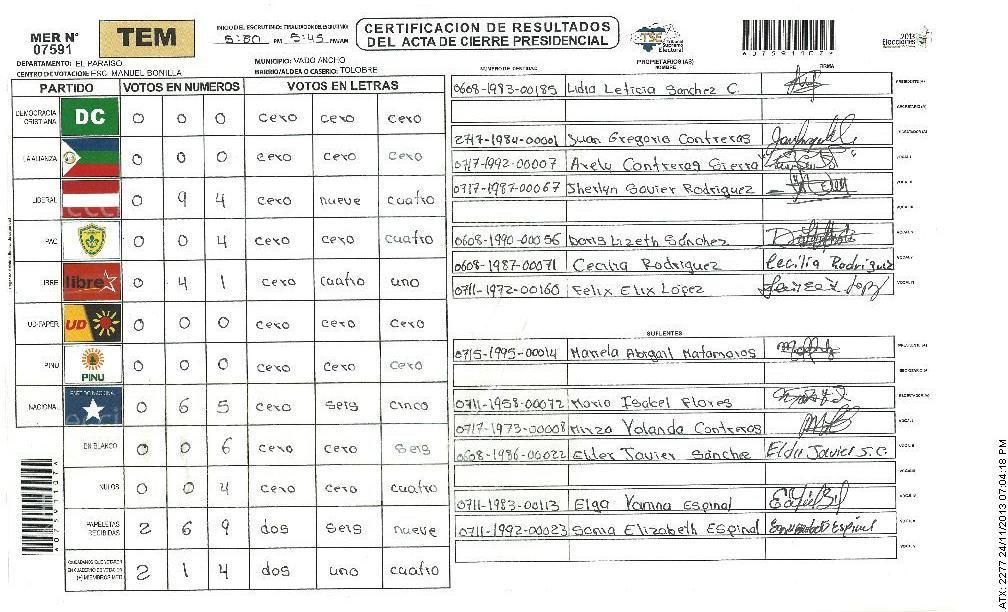 MER N° 07591
TEM
INICIO DEL ESCRUTINIO: FINALIZACION DEL ESCRUTINIO:
5:30 PM 5:45 PM/AM
CERTIFICACION DE RESULTADOS DEL ACTA DE CIERRE PRESIDENCIAL
TSE Supremo Electoral
A07591107A
2013 Elecciones
DEPARTAMENTO: EL PARAISO
MUNICIPIO: VADO ANCHO
CENTRO DE VOTACION: ESC. MANUEL BONILLA
BARRIO/ALDEA O CASERIO: TOLOBRE
PARTIDO VOTOS EN NUMEROS VOTOS EN LETRAS
DEMOCRACIA CRISTIANA DC 0 0 0 cero cero cero
LA ALIANZA 0 0 0 cero cero cero
LIBERAL 0 9 4 cero nueve cuatro
PAC 0 0 4 cero cero cuatro
LIBRE libre 0 4 1 cero cuatro uno
UD-FAPER UD 0 0 0 cero cero cero
PINU PINU 0 0 0 cero cero cero
NACIONAL PARTIDO NACIONAL 0 6 5 cero seis cinco
EN BLANCO 0 0 6 cero cero seis
NULOS 0 0 4 cero cero cuatro
PAPELETAS RECIBIDAS 2 6 9 dos seis nueve
CIUDADANOS QUE VOTARON EN CUADERNO DE VOTACION (+) MIEMBROS MER 2 1 4 dos uno cuatro
PROPIETARIOS (AS)
NUMERO DE IDENTIDAD NOMBRE FIRMA
0608-1983-00185 Lidia Leticia Sanchez C. PRESIDENTE (A)
SECRETARIO (A)
2717-1984-00001 Juan Gregorio Contreras ESCRUTADOR (A)
0717-1992-00007 Arely Contreras Sierra VOCAL I
0717-1987-00067 Sherlyn Savier Rodriguez VOCAL II
VOCAL III
0608-1990-00056 Doris Lizeth Sánchez VOCAL IV
0608-1987-00071 Cecilia Rodriguez Cecilia Rodriguez VOCAL V
0711-1972-00160 Felix Elix López VOCAL VI
SUPLENTES
0715-1995-00014 Mariela Abigail Matamoros PRESIDENTE (A)
SECRETARIO (A)
0711-1958-00072 Maria Isabel Flores ESCRUTADOR (A)
0717-1973-00008 Mirza Yolanda Contreras VOCAL I
0608-1986-00022 Elder Javier Sánchez Elder Javier S.C. VOCAL II
VOCAL III
0711-1983-00113 Elga Yamna Espinal VOCAL IV
0711-1992-00023 Sonia Elizabeth Espinal VOCAL V
VOCAL VI
ATX: 2277 24/11/2013 07:04:18 PM